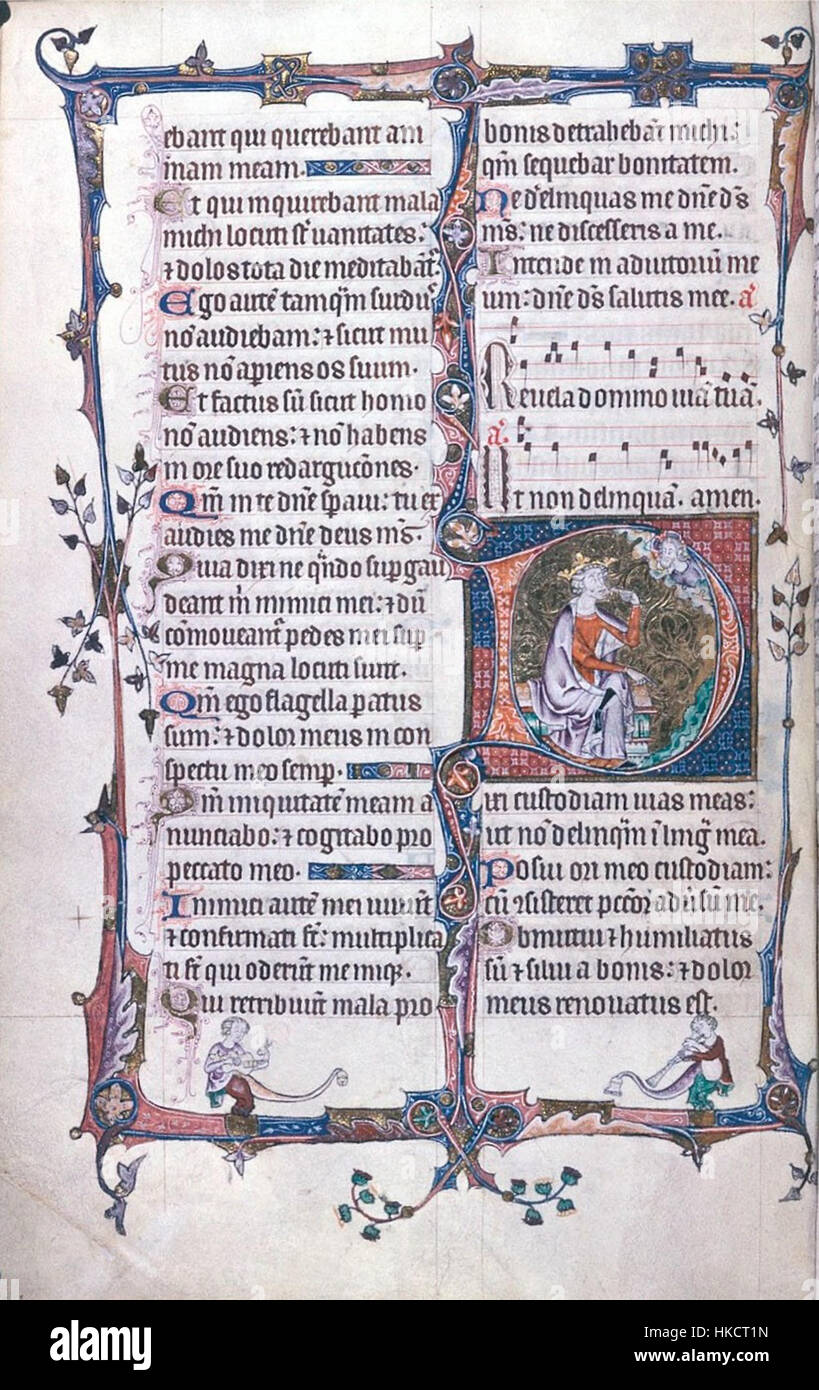 ebant qui querebant ani
mam meam.
Et qui inquirebant mala
michi locuti st̄ uanitates:
⁊ dolos tota die meditabāt̄.
Ego autē tamq̄m surdus
nō audiebam: ⁊ sicut mu
tus nō aperiens os suum.
Et factus sū sicut homo
nō audiens: ⁊ nō habens
in ore suo redargucōnes.
Qm̄ in te dn̄e speraui: tu ex
audies me dn̄e deus ms̄.
Quia dixi ne qn̄do supgau
deant m̄ inimici mei: ⁊ dū
cōmoueant̄ pedes mei sup
me magna locuti sunt.
Qm̄ ego flagella paratus
sum: ⁊ dolor meus in con
spectu meo semp.
Qm̄ iniquitatē meam a
nunciabo: ⁊ cogitabo pro
peccato meo.
Inimici autē mei uiuunt
⁊ confirmati st̄: multiplica
ti st̄ qui oderūt me inique.
Qui retribuūt mala pro
bonis detrahebāt michi:
qm̄ sequebar bonitatem.
Ne d̄elinquas me dn̄e ds̄
ms̄: ne discesseris a me.
Intende in adiutoriū me
um: dn̄e ds̄ salutis mee. a̓
Reuela domino uiā tuā.
a̓
Ut non delinquā. amen.
D
ixi custodiam uias meas:
ut nō delinqm̄ ī līnḡ mea.
Posui ori meo custodiam:
cū ꝯsisteret pccōr aduersū me.
Obmutui ⁊ humiliatus
sū ⁊ silui a bonis: ⁊ dolor
meus renouatus est.
alamy
Image ID: HKCT1N
www.alamy.com